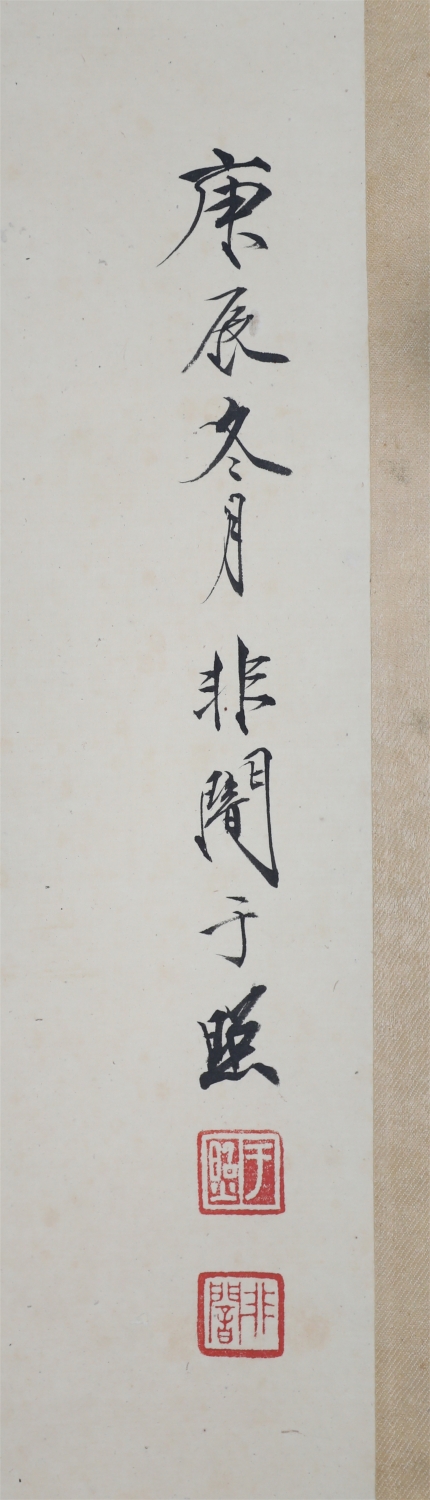 庚辰冬月非闇于照
于照
非闇